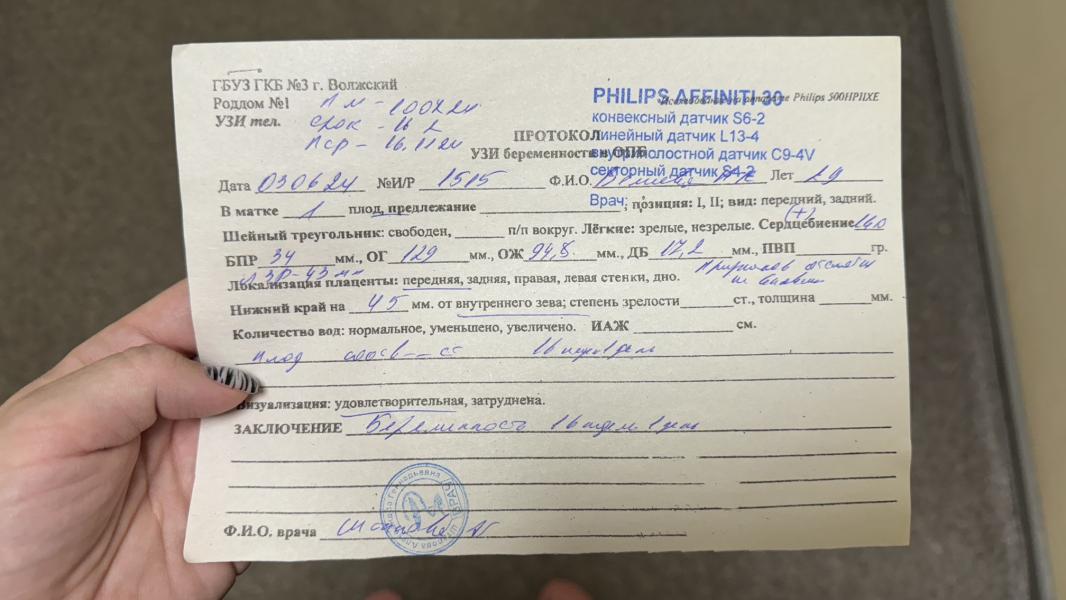 ГБУЗ ГКБ №3 г. Волжский
Роддом №1
УЗИ тел.
ПМ - 100224
срок - 16 2
ПСР - 16.11.24
Исследование на аппарате Philips 500HPIIXE
PHILIPS AFFINITI 30
конвексный датчик S6-2
линейный датчик L13-4
внутриполостной датчик C9-4V
секторный датчик S4-2
Врач:
ПРОТОКОЛ
УЗИ беременности в ОПБ
Дата 030624 №И/Р 1515 Ф.И.О. Лет 29
В матке 1 плод, предлежание ; позиция: I, II; вид: передний, задний.
Шейный треугольник: свободен, п/п вокруг. Лёгкие: зрелые, незрелые. Сердцебиение (+) 160
БПР 34 мм., ОГ 129 мм., ОЖ 94,8 мм., ДБ 17,2 мм., ПВП гр.
ЛЗР-43 мм
Локализация плаценты: передняя, задняя, правая, левая стенки, дно.
Нижний край на 45 мм. от внутреннего зева; степень зрелости ст., толщина мм.
Количество вод: нормальное, уменьшено, увеличено. ИАЖ см.
плод соотв--ет 16 нед 1 день
Визуализация: удовлетворительная, затруднена.
ЗАКЛЮЧЕНИЕ Беременность 16 недель 1 день
Ф.И.О. врача